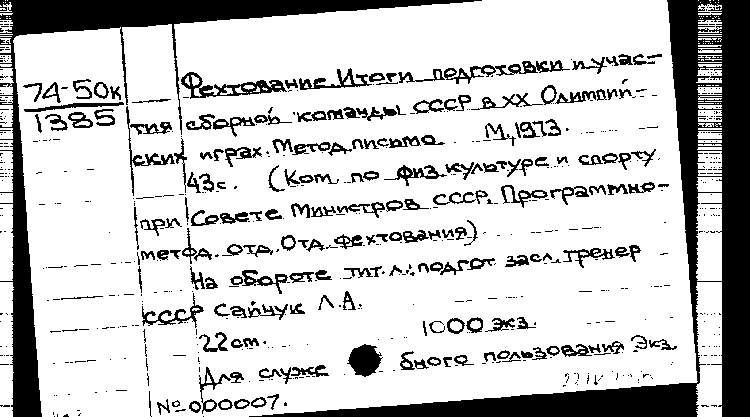 74-50к
1385
Фехтование. Итоги подготовки и учас-
тия сборной команды СССР в XX Олимпий-
ских играх. Метод. письмо. М., 1973.
43с. (Ком. по физ. культуре и спорту
при Совете Министров СССР. Программно-
метод. отд. Отд. фехтования)
На обороте тит. л.: подгот. засл. тренер
СССР Сайчук Л.А.
22см. 1000 экз.
Для служебного пользования Экз.
№ 000007.